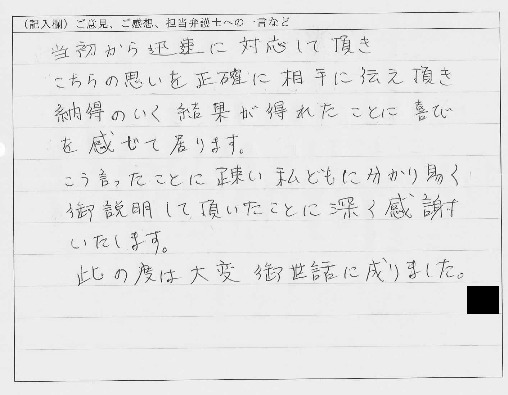 (記入欄）ご意見、ご感想、担当弁護士への一言など
当初から迅速に対応して頂き
こちらの思いを正確に相手に伝え頂き
納得のいく結果が得れたことに喜び
を感じて居ります。
こう言ったことに疎い私どもに分かり易く
御説明して頂いたことに深く感謝
いたします。
此の度は大変御世話に成りました。